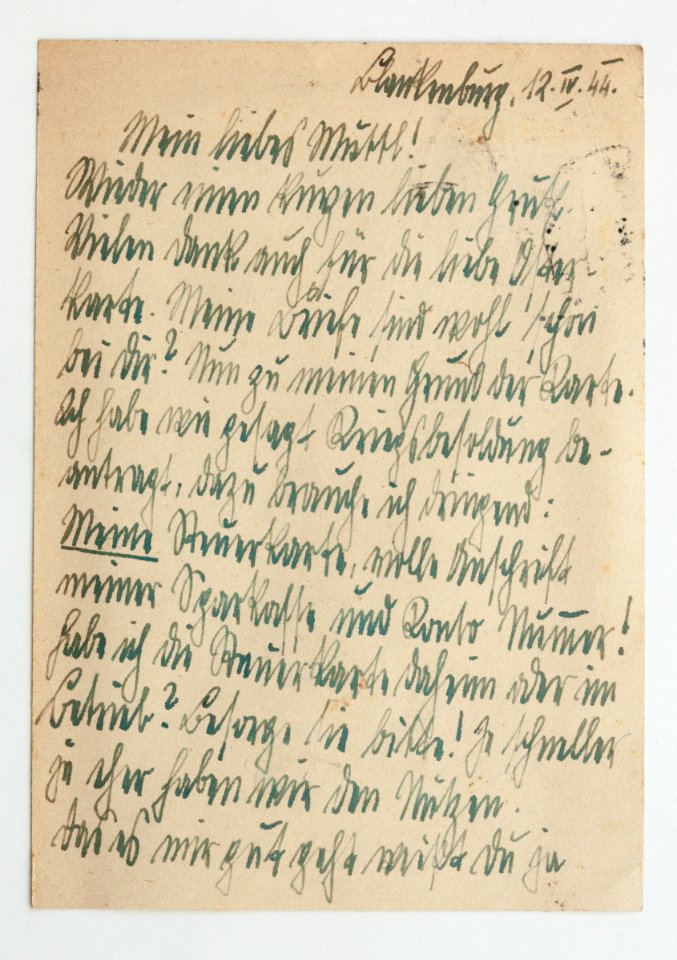 Blankenburg, 12.IV.44.
Mein liebes Muttl!
Wieder einen kurzen lieben Gruß.
Vielen Dank auch für die liebe Oster-
karte. Meine Briefe sind wohl schon
bei Dir? Nun zu meinen Grund der Karte.
Ich habe wie gesagt Kriegsbesoldung be-
antragt, dazu brauche ich dringend:
Meine Steuerkarte, volle Anschrift
meiner Sparkasse und Konto Nummer!
Habe ich die Steuerkarte daheim oder im
Betrieb? Besorge sie bitte! Je schneller
je eher haben wir den Nutzen.
Das es mir gut geht weißt Du ja